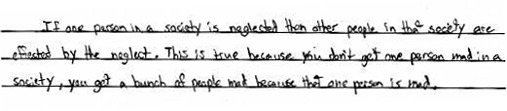 If one person in a society is neglected then other people in that society are
effected by the neglect. This is true because you don't get one person mad in a
society, you get a bunch of people mad because that one person is mad.